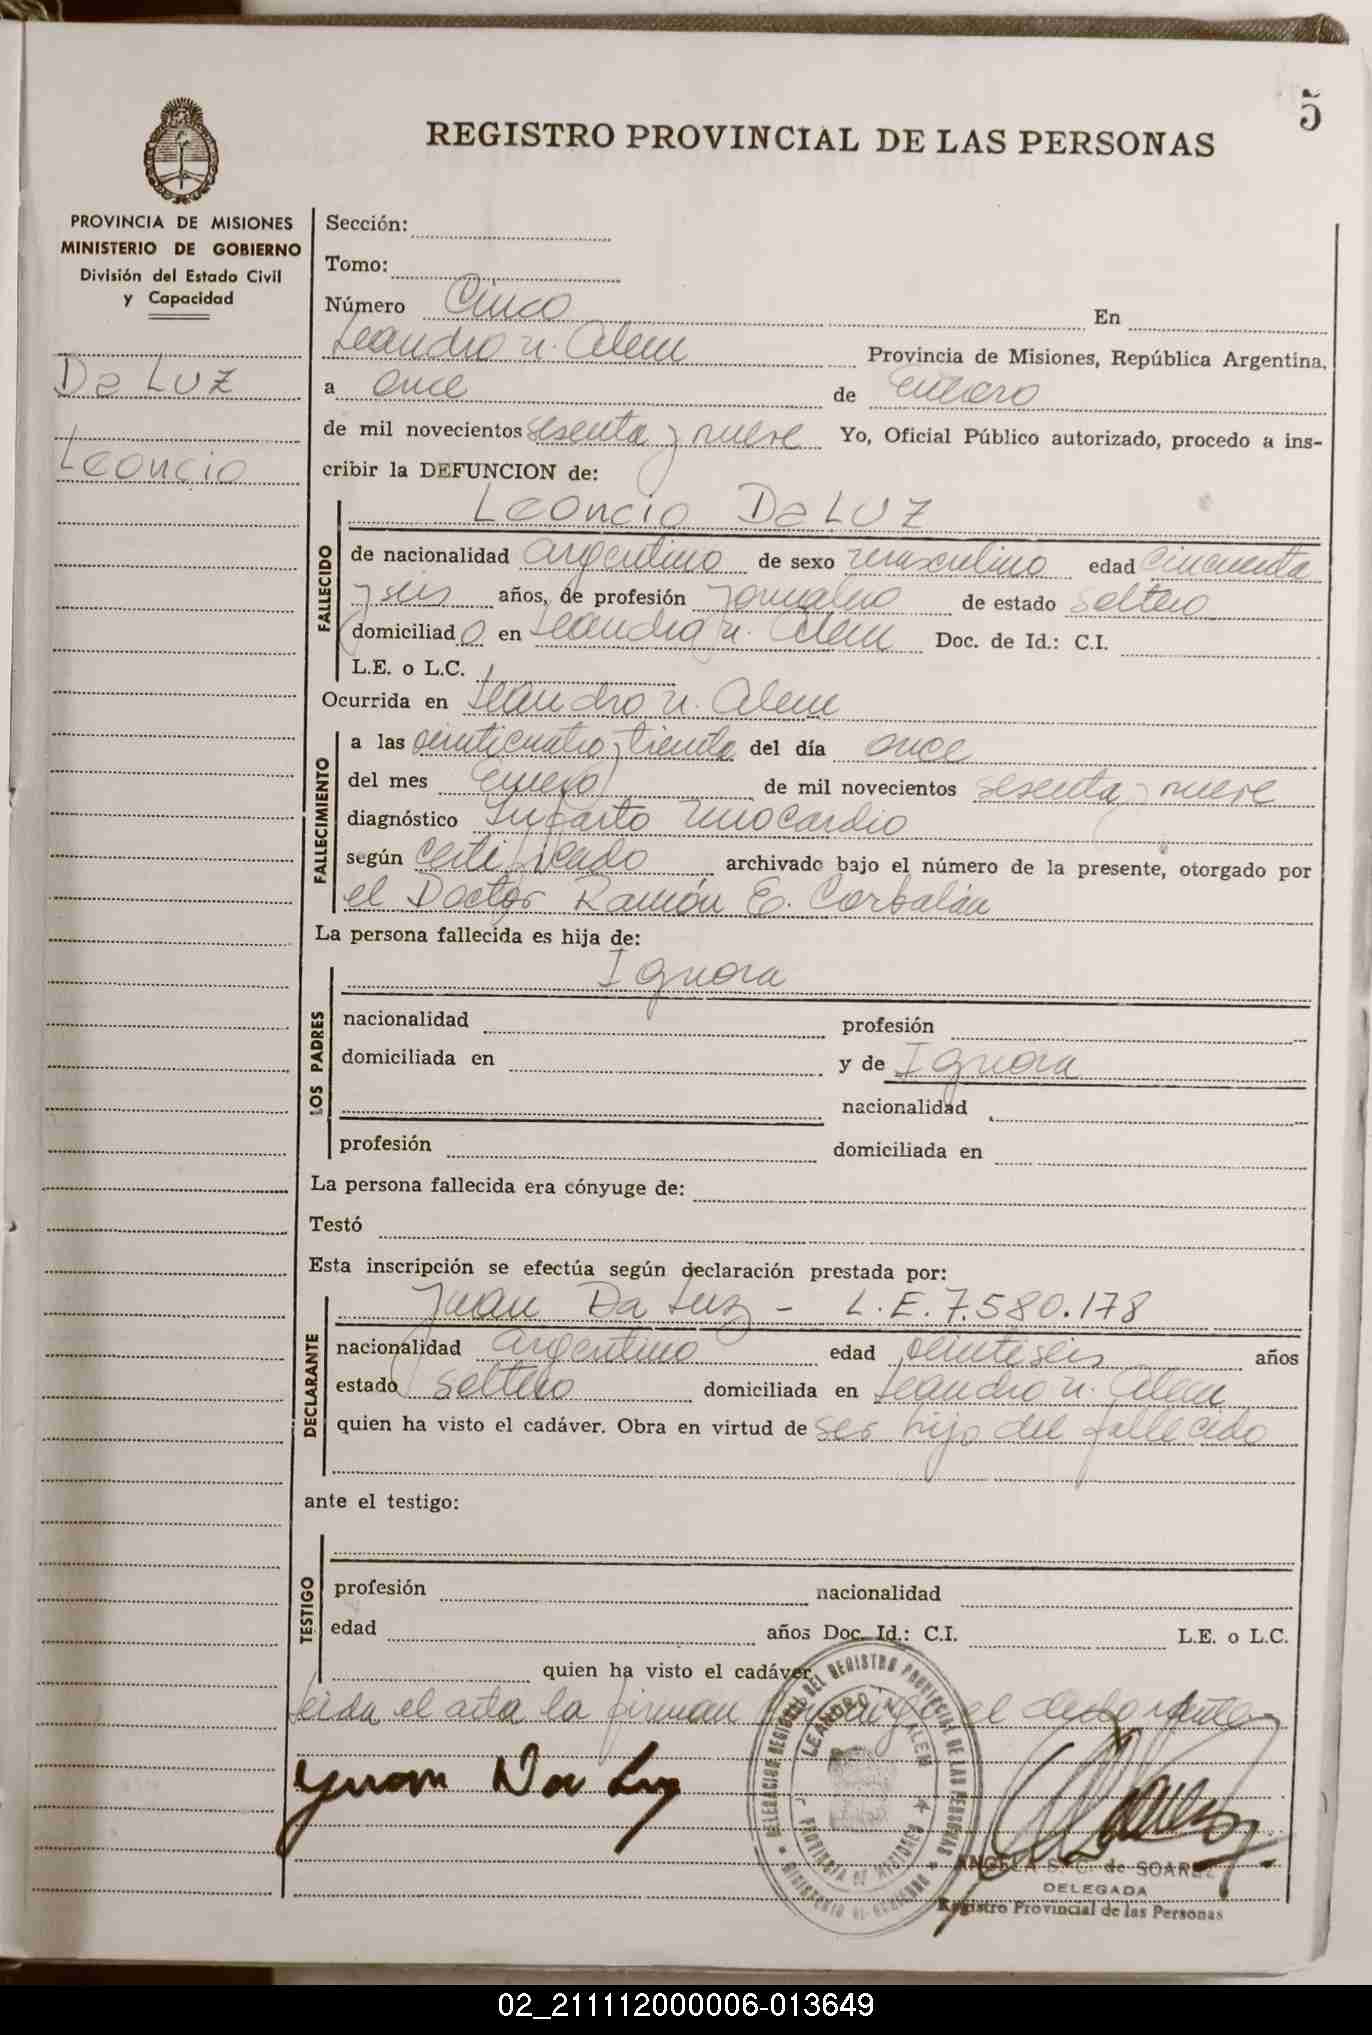 5
REGISTRO PROVINCIAL DE LAS PERSONAS
PROVINCIA DE MISIONES
MINISTERIO DE GOBIERNO
División del Estado Civil
y Capacidad
Da LUZ
Leoncio
Sección:
Tomo:
Número Cinco En
Leandro N. Alem Provincia de Misiones, República Argentina,
a once de Enero
de mil novecientos sesenta y nueve Yo, Oficial Público autorizado, procedo a ins-
cribir la DEFUNCION de:
Leoncio Da LUZ
FALLECIDO
de nacionalidad argentino de sexo masculino edad cincuenta
y seis años, de profesión jornalero de estado soltero
domiciliado en Leandro N. Alem Doc. de Id.: C.I.
L.E. o L.C.
Ocurrida en Leandro N. Alem
FALLECIMIENTO
a las veinticuatro y treinta del día once
del mes Enero de mil novecientos sesenta y nueve
diagnóstico Infarto miocardio
según certificado archivado bajo el número de la presente, otorgado por
el Doctor Ramón E. Corbalán
La persona fallecida es hija de:
Ignora
LOS PADRES
nacionalidad profesión
domiciliada en y de Ignora
nacionalidad
profesión domiciliada en
La persona fallecida era cónyuge de:
Testó
Esta inscripción se efectúa según declaración prestada por:
Juan Da Luz - L.E. 7.580.178
DECLARANTE
nacionalidad argentino edad veintiseis años
estado soltero domiciliada en Leandro N. Alem
quien ha visto el cadáver. Obra en virtud de ser hijo del fallecido
ante el testigo:
TESTIGO
profesión nacionalidad
edad años Doc. Id.: C.I. L.E. o L.C.
quien ha visto el cadáver
Leida el acta la firman conmigo el declarante
Juan Da Luz
DELEGACION REGIONAL DEL REGISTRO PROVINCIAL DE LAS PERSONAS
LEANDRO N. ALEM
PROVINCIA DE MISIONES
MINISTERIO DE GOBIERNO
ANGELA S. C. de SOAREZ
DELEGADA
Registro Provincial de las Personas
02_211112000006-013649